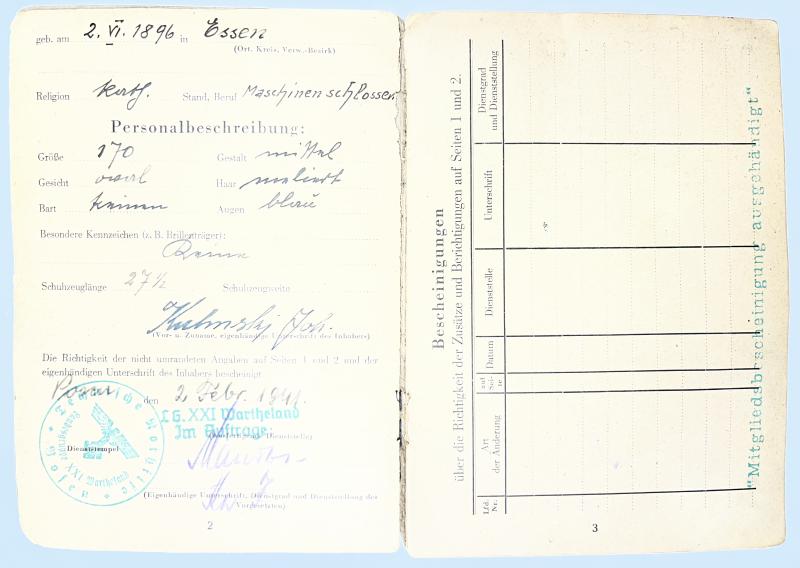 geb. am 2. VI. 1896 in Essen
(Ort, Kreis, Verw.-Bezirk)
Religion kath. Stand, Beruf Maschinenschlosser
Personalbeschreibung:
Größe 170 Gestalt mittel
Gesicht oval Haar meliert
Bart keinen Augen blau
Besondere Kennzeichen (z. B. Brillenträger):
Keine
Schuhzeuglänge 27½ Schuhzeugweite
Joh.
(Vor- u. Zuname, eigenhändige Unterschrift des Inhabers)
Die Richtigkeit der nicht umrandeten Angaben auf Seiten 1 und 2 und der
eigenhändigen Unterschrift des Inhabers bescheinigt
Posen den 2. Febr. 1941.
LG. XXI Wartheland
Im Auftrage:
Technische Nothilfe
XXI Wartheland
Dienststempel
(Eigenhändige Unterschrift, Dienstgrad und Dienststellung des
Vorgesetzten)
2
Bescheinigungen
über die Richtigkeit der Zusätze und Berichtigungen auf Seiten 1 und 2.
Lfd. Nr.
Art der Änderung
auf Seite
Datum
Dienststelle
Unterschrift
Dienstgrad und Dienststellung
"Mitgliedsbescheinigung ausgehändigt"
3